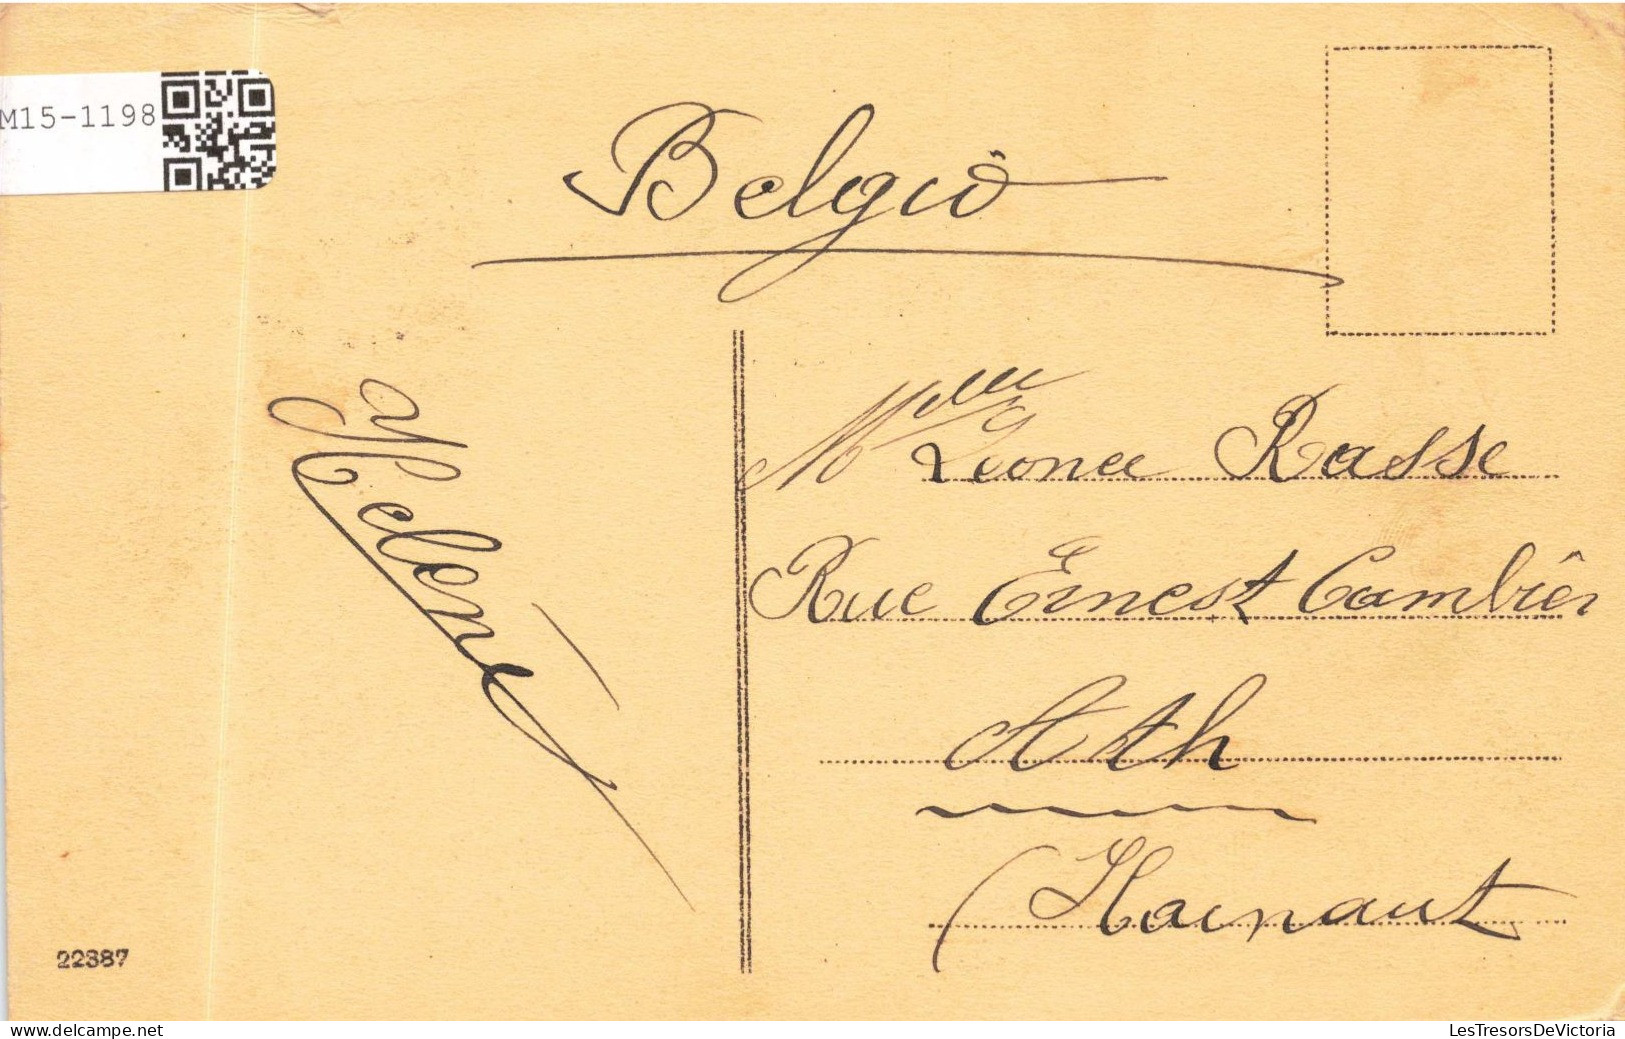 M15-1198
Belgio
Melle Leona Rasse
Rue Ernest Cambier
Ath
(Hainaut
Helene
22387
www.delcampe.net
LesTresorsDeVictoria